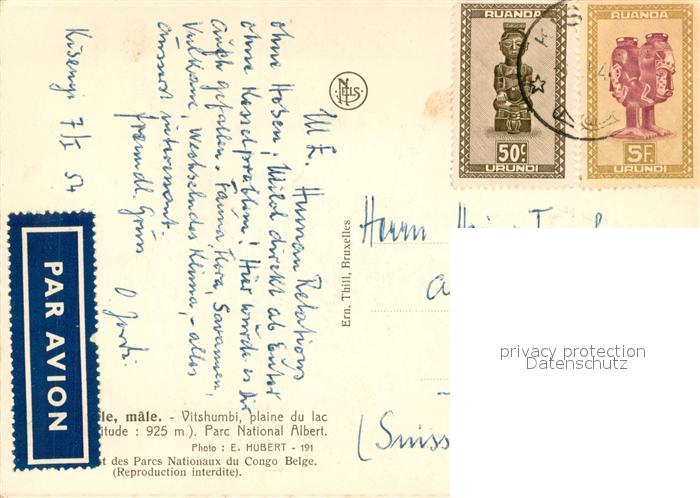 RUANDA
50c
URUNDI
RUANDA
5F
URUNDI
NELS
Human Relations
ohne Hosen, Milch direkt ab Euter
ohne Kesselproblem! Hier würde es dir
auch gefallen. Fauna, Flora, Savannen,
Vulkane, wechselndes Klima, - alles
äusserst interessant.
freundl. Grüss
Kisenyi 7/I 54
PAR AVION
Ern. Thill, Bruxelles
Herrn
(Suiss
le, mâle. - Vitshumbi, plaine du lac
itude : 925 m.). Parc National Albert.
Photo : E. HUBERT - 191
t des Parcs Nationaux du Congo Belge.
(Reproduction interdite).
privacy protection
Datenschutz